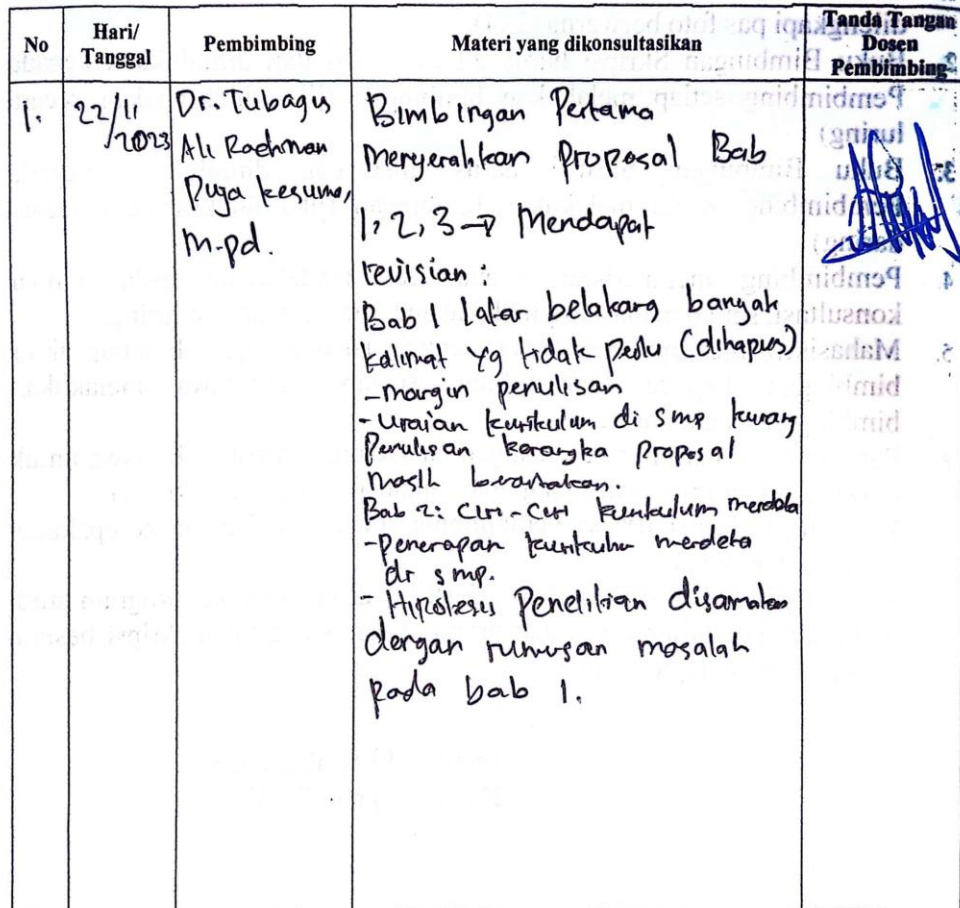 No
Hari/
Tanggal
Pembimbing
Materi yang dikonsultasikan
Tanda Tangan
Dosen
Pembimbing
1.
22/11
/2023
Dr. Tubagus
Ali Rachman
Puja kesuma,
M.pd.
Bimbingan Pertama
Menyerahkan Proposal Bab
1, 2, 3 → Mendapat
revisian :
Bab 1 Latar belakang banyak
kalimat yg tidak perlu (dihapus)
- margin penulisan
- uraian kurikulum di smp kurang
Penulisan kerangka proposal
masih berantakan.
Bab 2: Ciri-Ciri kurikulum merdeka
- Penerapan kurikulum merdeka
di smp.
- Hipotesis Penelitian disamakan
dengan rumusan masalah
pada bab 1.